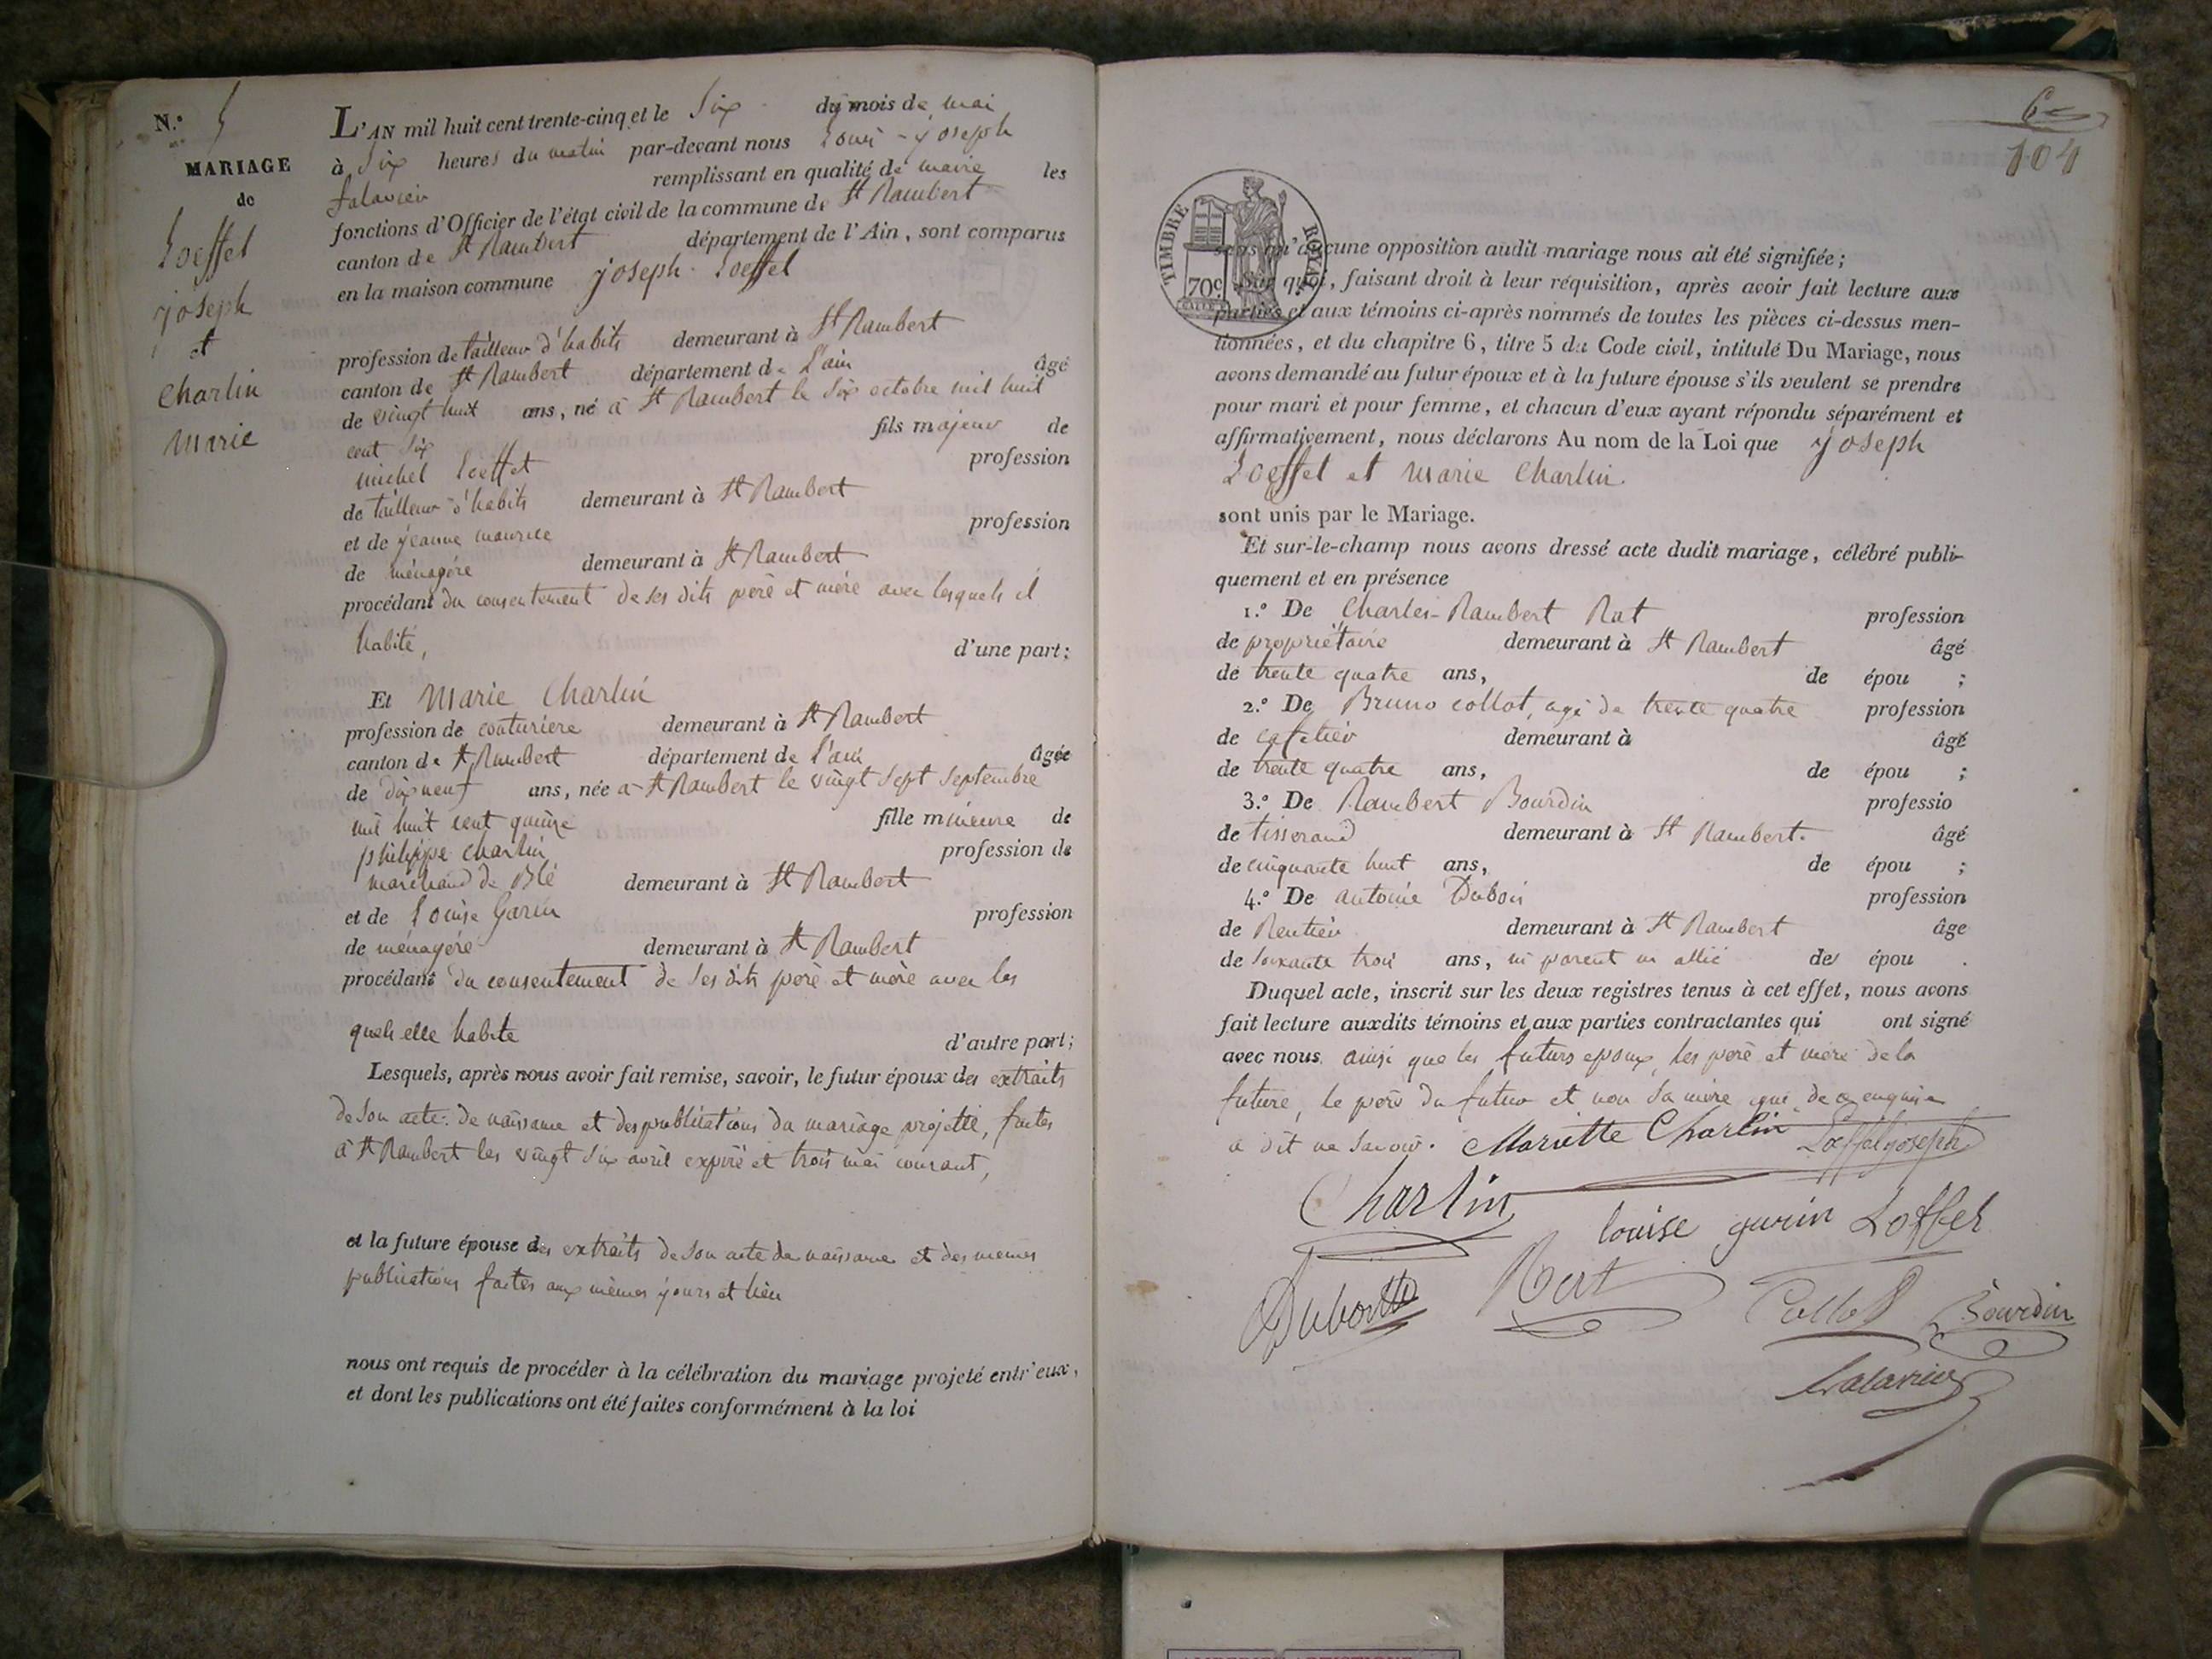 N.° 5
MARIAGE
de
Loeffel
joseph
et
Charlin
Marie
L'AN mil huit cent trente-cinq et le Six du mois de mai
à Six heures du matin par-devant nous Louis-joseph
falavier remplissant en qualité de maire les
fonctions d'Officier de l'état civil de la commune de St Rambert
canton de St Rambert département de l'Ain, sont comparus
en la maison commune joseph Loeffel
profession de tailleur d'habits demeurant à St Rambert
canton de St Rambert département de L'ain âgé
de vingt huit ans, né à St Rambert le Six octobre mil huit
cent Six fils majeur de
michel Loeffel profession
de tailleur d'habits demeurant à St Rambert
et de jeanne maurice profession
de ménagére demeurant à St Rambert
procédant du consentement de ses dits pere et mere avec lesquels il
habite, d'une part;
Et Marie Charlin
profession de couturiere demeurant à St Rambert
canton de St Rambert département de l'ain âgée
de dix neuf ans, née à St Rambert le vingt Sept Septembre
mil huit cent quinze fille mineure de
philippe charlin profession de
marchand de Blé demeurant à St Rambert
et de Louise Garin profession
de ménagére demeurant à St Rambert
procédant du consentement de ses dits pere et mère avec les
quels elle habite d'autre part;
Lesquels, après nous avoir fait remise, savoir, le futur époux des extraits
de son acte de naissance et des publications du mariage projetté, faites
à St Rambert les vingt Six avril expiré et trois mai courant,
et la future épouse des extraits de son acte de naissance et des memes
publications faites aux mêmes jours et lieu
nous ont requis de procéder à la célébration du mariage projeté entr'eux,
et dont les publications ont été faites conformément à la loi
6
104
TIMBRE ROYAL
70c
sans qu'aucune opposition audit mariage nous ait été signifiée;
Sur quoi, faisant droit à leur réquisition, après avoir fait lecture aux
parties et aux témoins ci-après nommés de toutes les pièces ci-dessus men-
tionnées, et du chapitre 6, titre 5 du Code civil, intitulé Du Mariage, nous
avons demandé au futur époux et à la future épouse s'ils veulent se prendre
pour mari et pour femme, et chacun d'eux ayant répondu séparément et
affirmativement, nous déclarons Au nom de la Loi que joseph
Loeffel et Marie Charlin.
sont unis par le Mariage.
Et sur-le-champ nous avons dressé acte dudit mariage, célébré publi-
quement et en présence
1.° De Charles-Rambert Rat profession
de propriétaire demeurant à St Rambert âgé
de trente quatre ans, de épou ;
2.° De Bruno collot, agé de trente quatre profession
de cafetier demeurant à âgé
de trente quatre ans, de épou ;
3.° De Rambert Bourdin professio
de tisserand demeurant à St Rambert. âgé
de cinquante huit ans, de épou ;
4.° De antoine Dubois profession
de Rentier demeurant à St Rambert âge
de soixante trois ans, ni parent ni allié des épou .
Duquel acte, inscrit sur les deux registres tenus à cet effet, nous avons
fait lecture auxdits témoins et aux parties contractantes qui ont signé
avec nous ainsi que les futurs epoux, les pere et mere de la
future, le pere du futur et non sa mère qui de ce enquise
a dit ne savoir. Mariette Charlin Loeffel joseph
Charlin louise garin Loffel
Rat Collot Bourdin
falavier